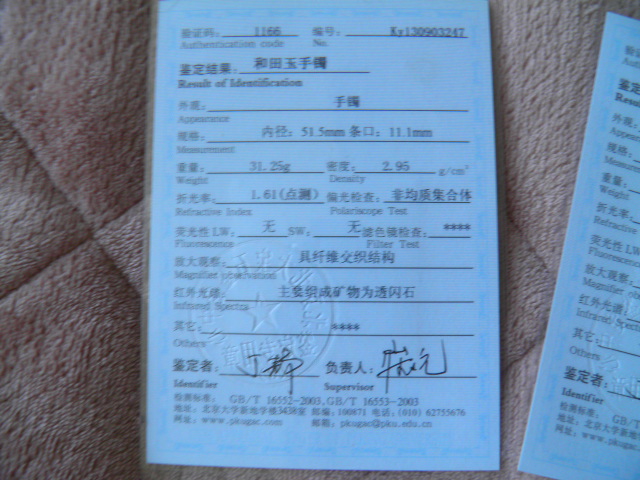 验证码: 1166 编号: Ky130903247
Authentication code No.
鉴定结果: 和田玉手镯
Result of Identification
外观: 手镯
Appearance
规格: 内径: 51.5mm 条口: 11.1mm
Measurement
重量: 31.25g 密度: 2.95 g/cm³
Weight Density
折光率: 1.61(点测) 偏光检查: 非均质集合体
Refractive Index Polariscope Test
荧光性 LW: 无 SW: 无 滤色镜检查: ****
Fluorescence Filter Test
放大观察: 具纤维交织结构
Magnifier observation
红外光谱: 主要组成矿物为透闪石
Infrared Spectra
其它: ****
Others
鉴定者: 负责人:
Identifier Supervisor
检测标准: GB/T 16552-2003,GB/T 16553-2003
地址: 北京大学新地学楼3438室 邮编: 100871 电话: (010) 62755676
网址: www.pkugac.com 邮箱: pkugac@pku.edu.cn
鉴定
Res
外观:
Appeara
规格:
Measurem
重量:
Weight
折光率:
Refractive
荧光性 LW
Fluorescenc
放大观察:
Magnifier
红外光谱:
Infrared
其它:
Others
鉴定者:
Identifier
检测标准:
地址: 北京大
网址: www.p